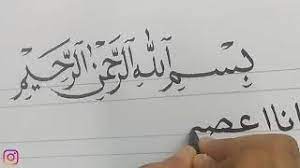 بِسْمِ اللهِ الرَّحْمٰنِ الرَّحِيْمِ
انا اعصى